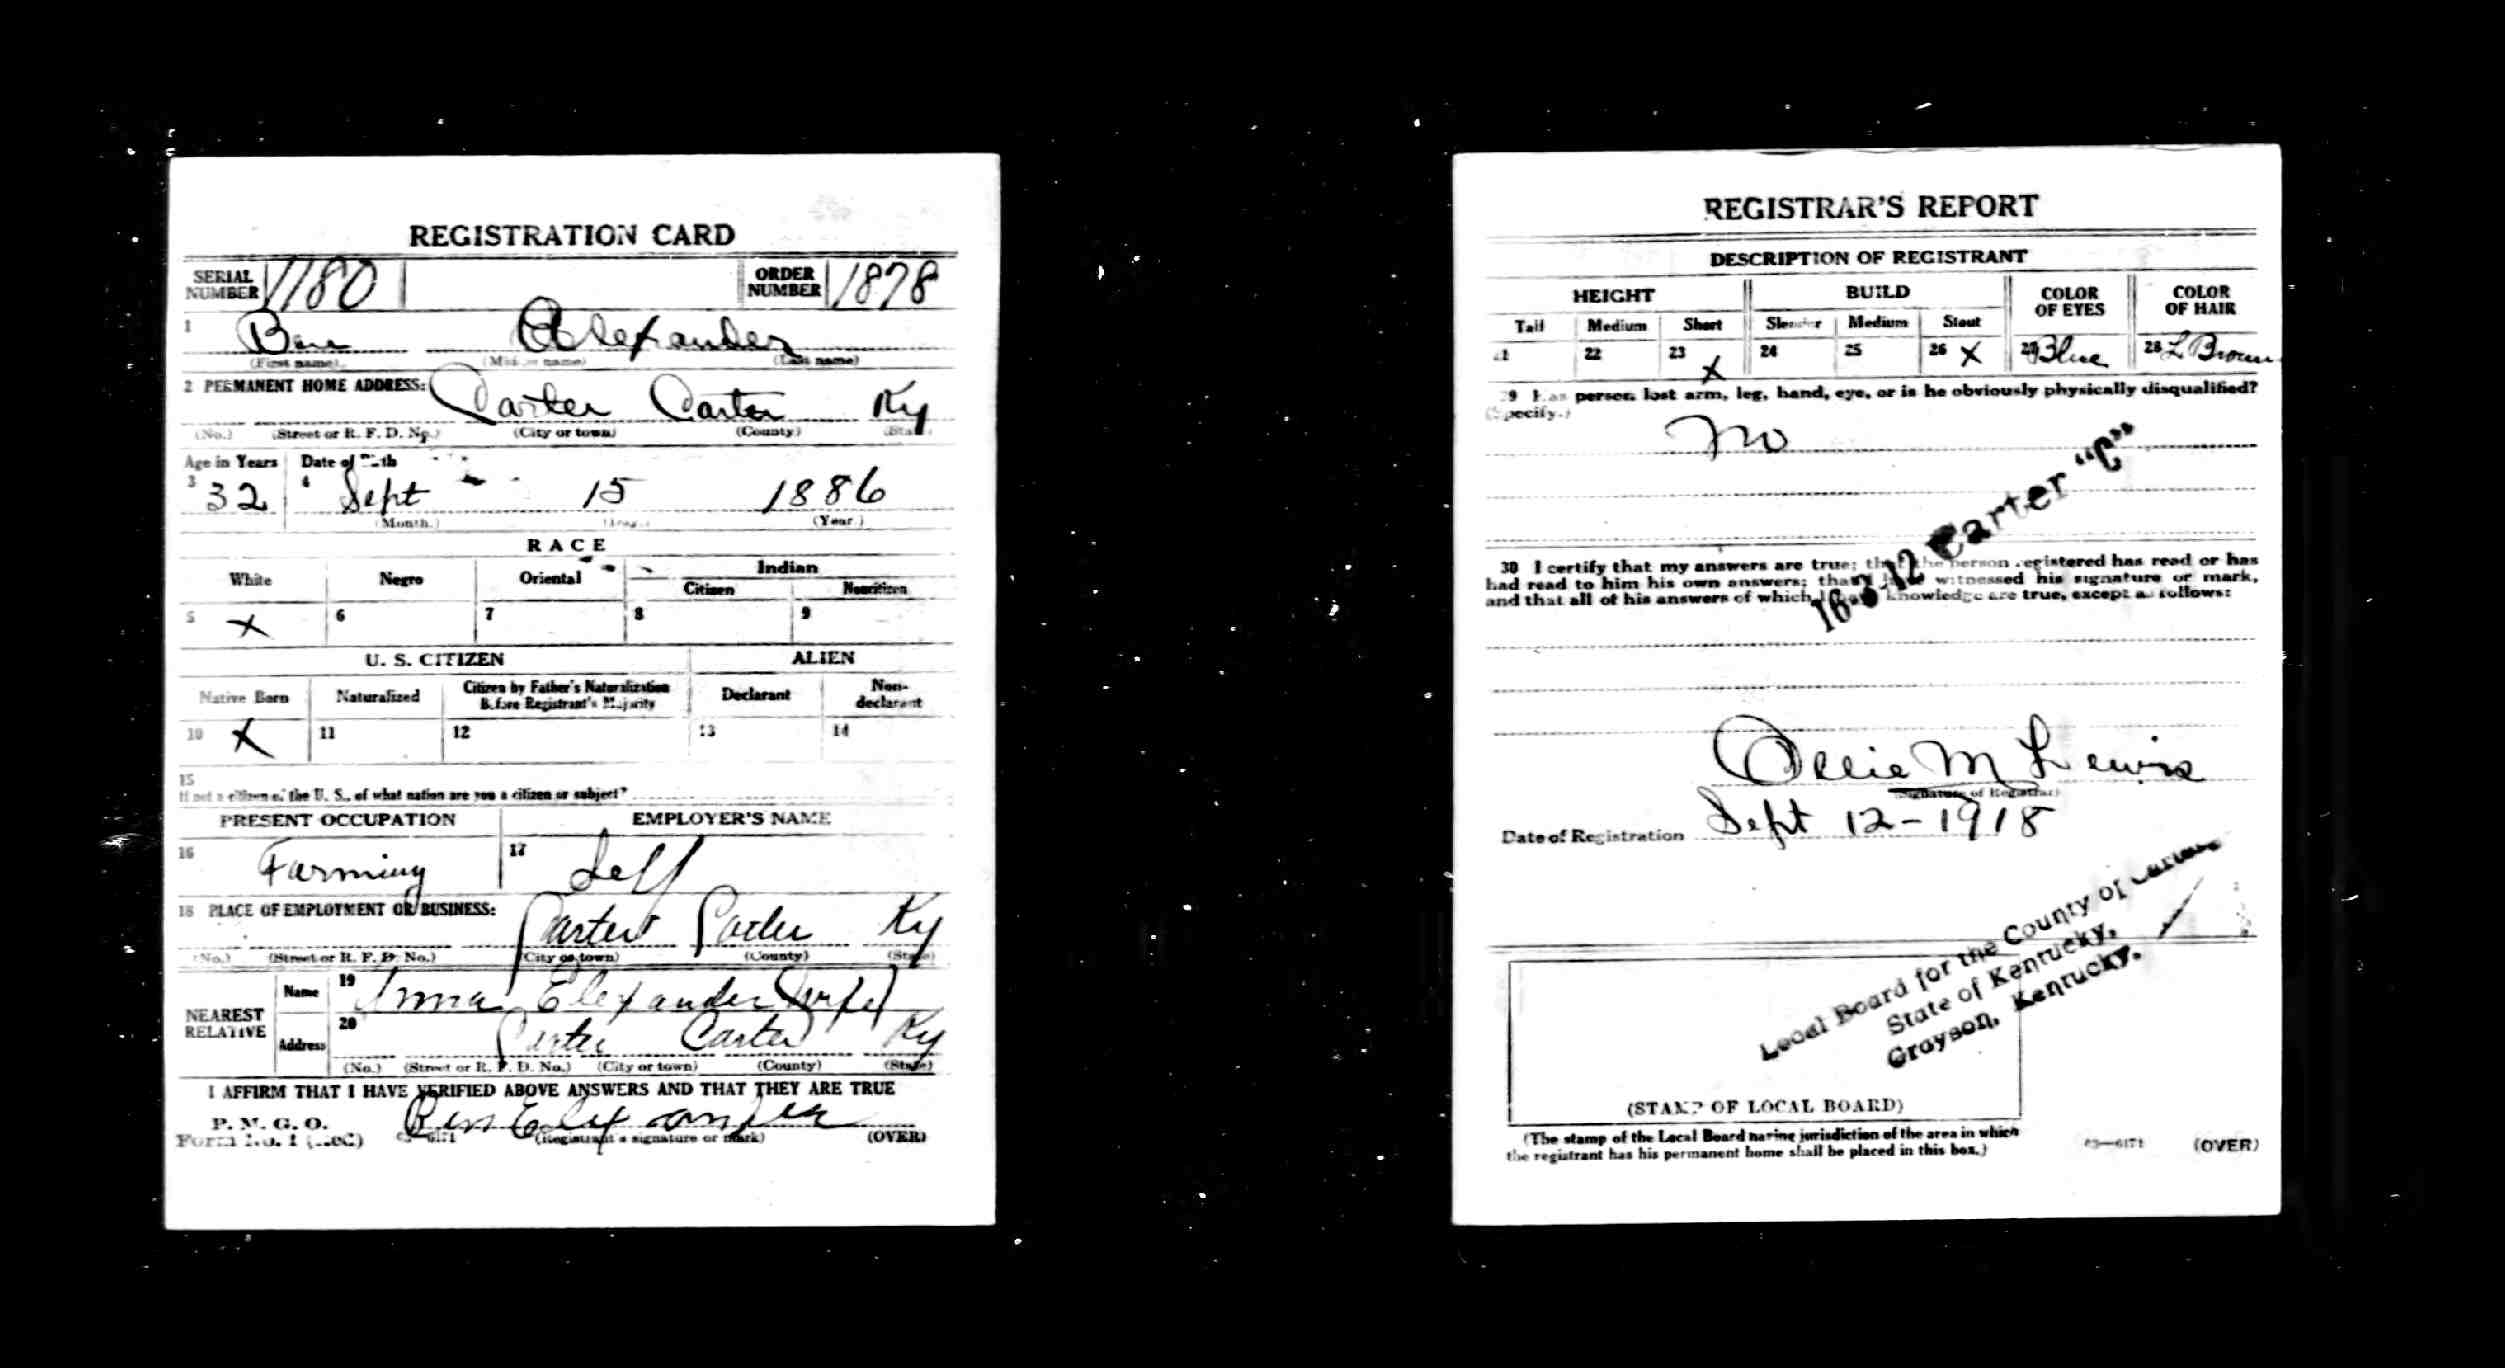 REGISTRATION CARD
SERIAL NUMBER 1180 ORDER NUMBER 1878
1 Ben Alexander
(First name) (Middle name) (Last name)
2 PERMANENT HOME ADDRESS: Carter Carter Ky
(No.) (Street or R. F. D. No.) (City or town) (County) (State)
Age in Years Date of Birth
3 32 4 Sept 15 1886
(Month.) (Day.) (Year.)
RACE
White Negro Oriental Indian
Citizen Noncitizen
5 X 6 7 8 9
U. S. CITIZEN ALIEN
Native Born Naturalized Citizen by Father's Naturalization Before Registrant's Majority Declarant Non-declarant
10 X 11 12 13 14
15
If not a citizen of the U. S., of what nation are you a citizen or subject?
PRESENT OCCUPATION EMPLOYER'S NAME
16 Farming 17 Self
18 PLACE OF EMPLOYMENT OR BUSINESS: Carter Carter Ky
(No.) (Street or R. F. D. No.) (City or town) (County) (State)
NEAREST RELATIVE Name 19 Anna Elexander (wife)
Address 20 Carter Carter Ky
(No.) (Street or R. F. D. No.) (City or town) (County) (State)
I AFFIRM THAT I HAVE VERIFIED ABOVE ANSWERS AND THAT THEY ARE TRUE
P. M. G. O.
Form No. 1 (Red) Ben Elexander
(Registrant's signature or mark) (OVER)
REGISTRAR'S REPORT
DESCRIPTION OF REGISTRANT
HEIGHT BUILD COLOR OF EYES COLOR OF HAIR
Tall Medium Short Slender Medium Stout
21 22 23 X 24 25 26 X 27 Blue 28 L Brown
29 Has person lost arm, leg, hand, eye, or is he obviously physically disqualified?
(Specify.)
No
16-3-12 Carter "C"
30 I certify that my answers are true; that the person registered has read or has
had read to him his own answers; that I have witnessed his signature or mark,
and that all of his answers of which I have knowledge are true, except as follows:
Ollie M Lewis
(Signature of Registrar)
Date of Registration Sept 12-1918
Local Board for the County of Carter,
State of Kentucky,
Grayson, Kentucky.
(STAMP OF LOCAL BOARD)
(The stamp of the Local Board having jurisdiction of the area in which
the registrant has his permanent home shall be placed in this box.)
03—6171 (OVER)